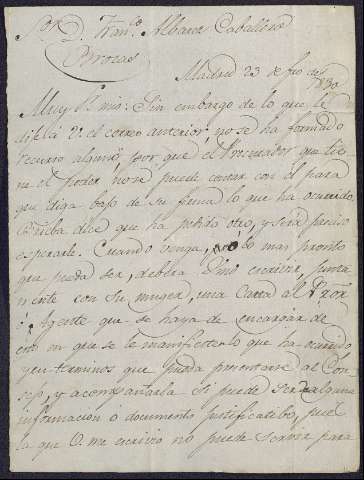 Sor D. Franco Albarez Caballero
Brozas
Madrid 23 de fro de 1830
Muy S. mio: Sin embargo de lo que le
dije á V. el correo anterior, no se ha formado
recurso alguno por que el Procurador que tie
ne el poder no se puede contar con el para
que diga bajo de su firma lo que ha ocurrido,
dice que ha pedido otro, y será preciso
esperarle. Cuando venga, ó lo mas pronto
que pueda ser, deberá escribir, junta
mente con su muger, una Carta al Procr
ó Agente que se haya de encargar de
esto en que se le manifieste lo que ha ocurrido
y en terminos que pueda presentarse al Con
sejo, y acompañarla si puede ser alguna
informacion o documento justificatibo, pues
la que V. me escribio no puede servir para